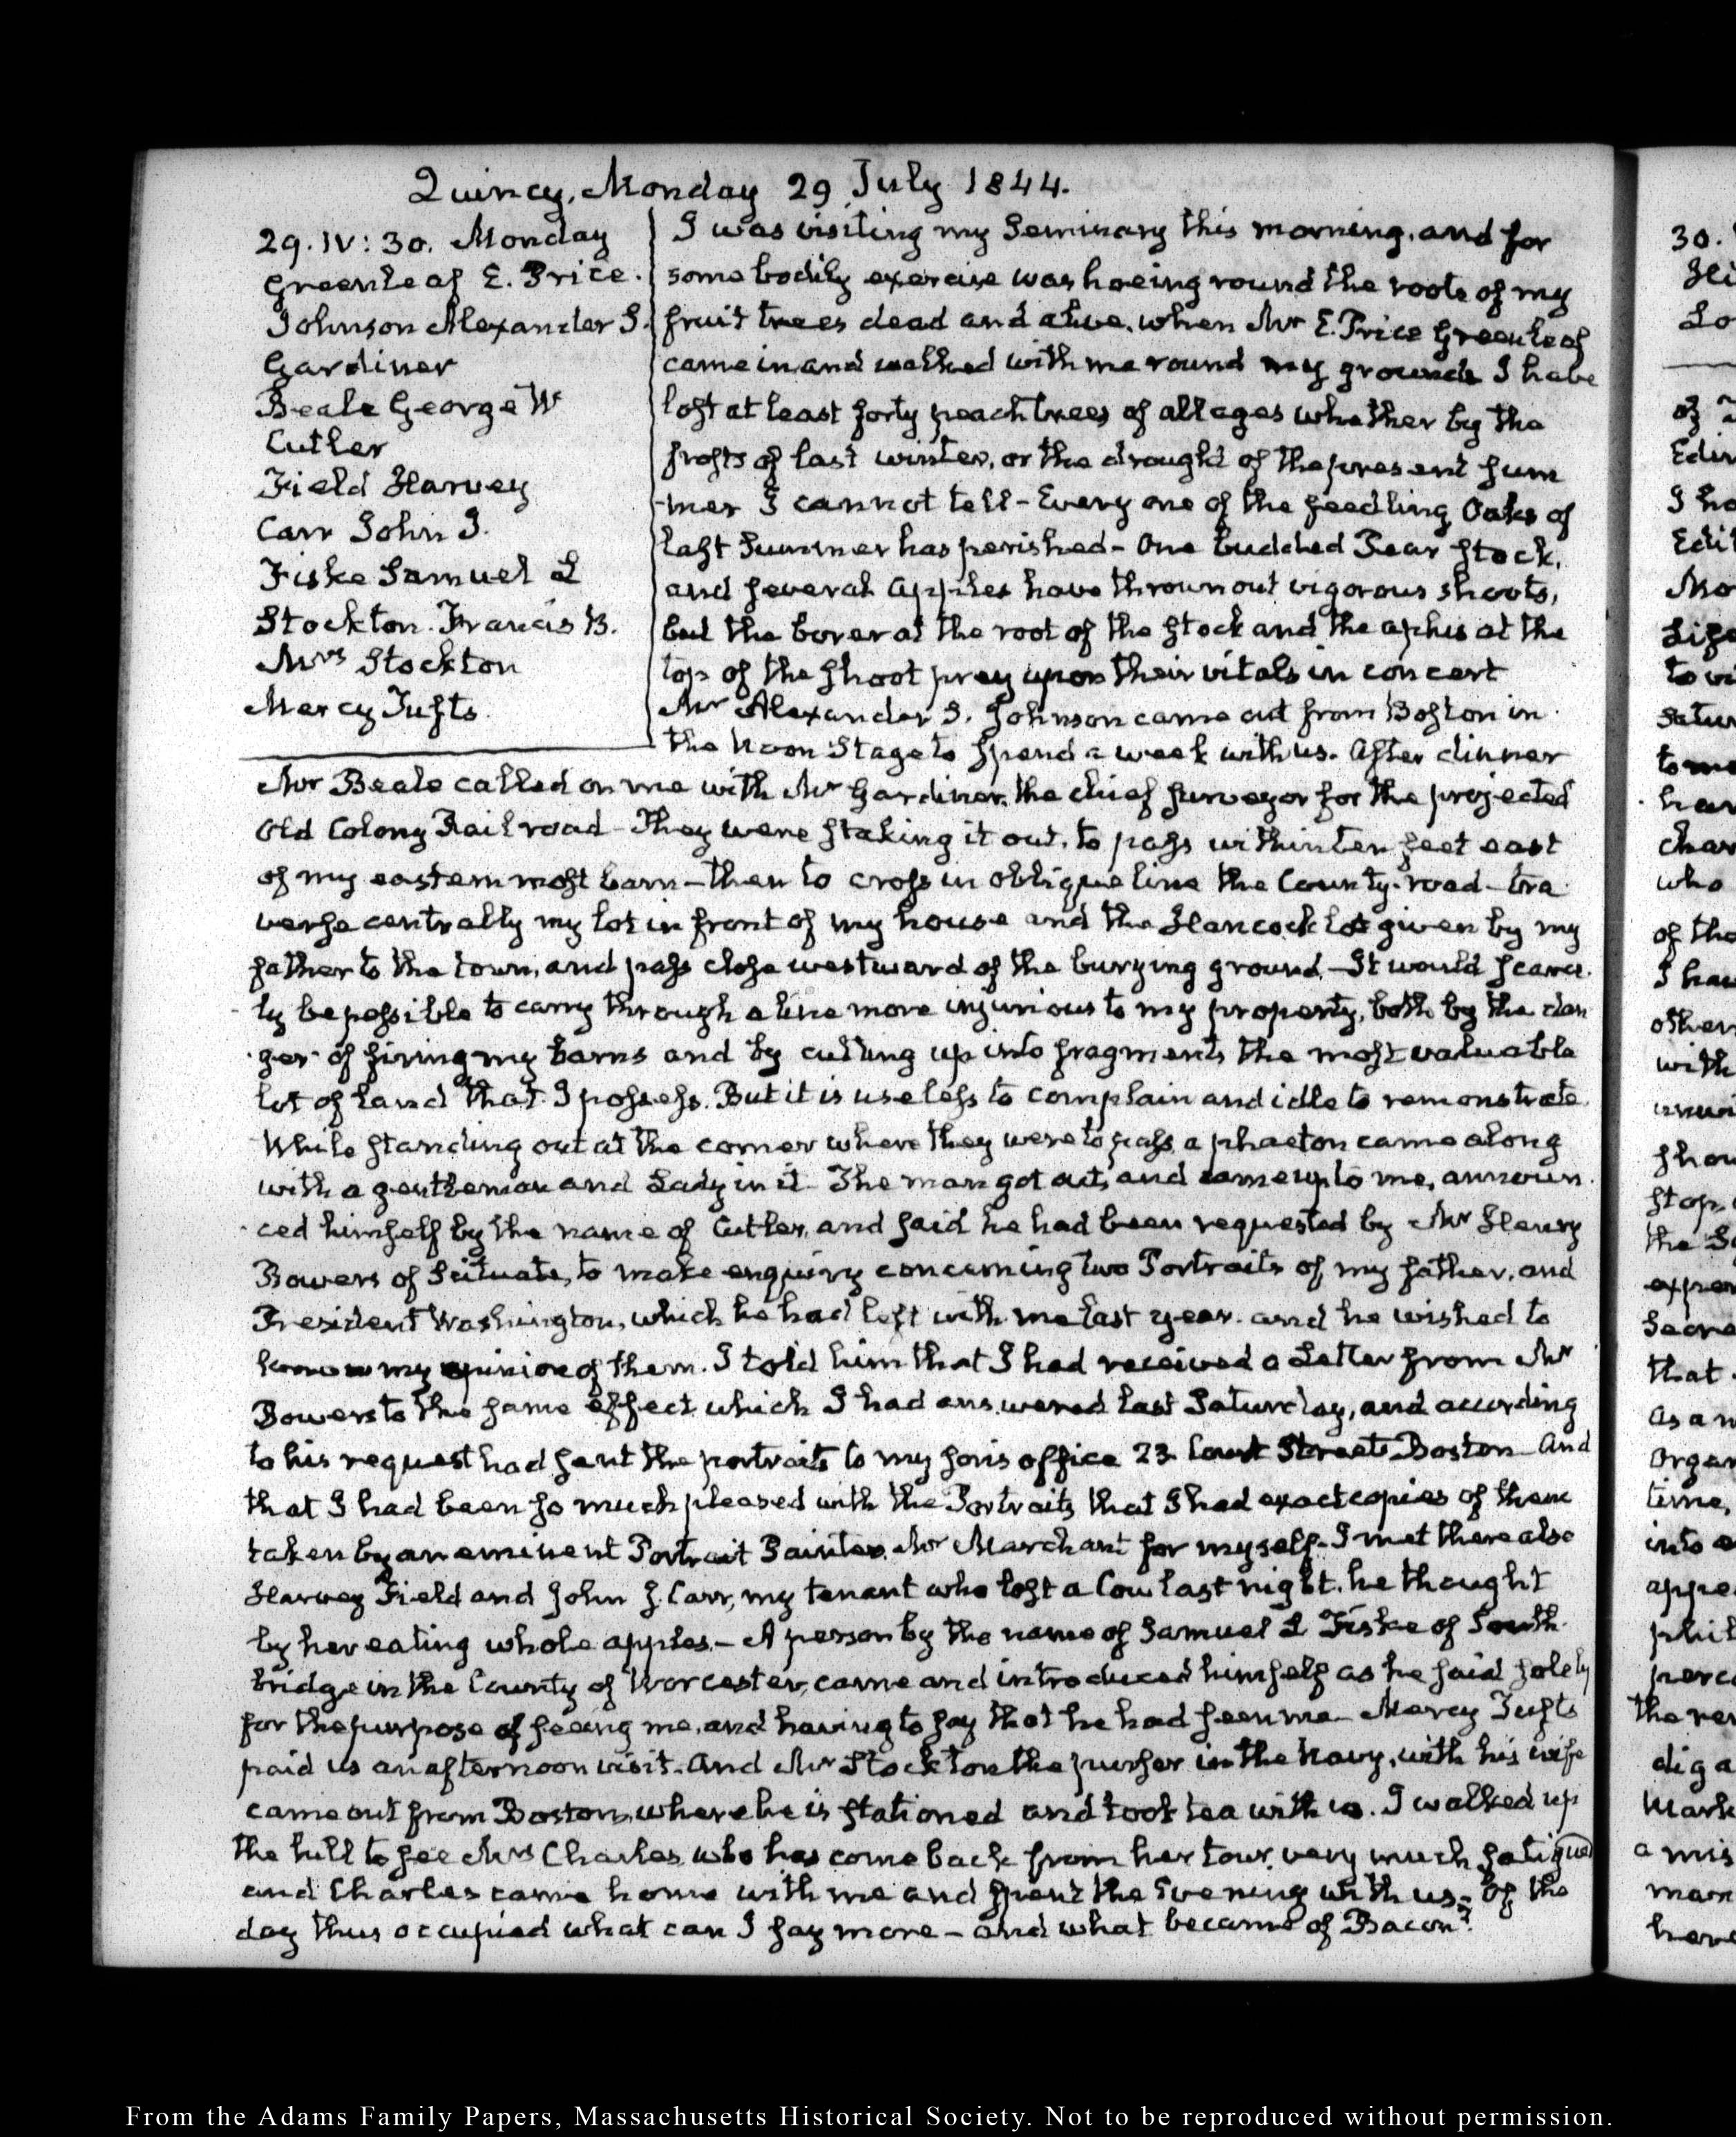 Quincy, Monday 29 July 1844.
29. IV: 30. Monday
Greenleaf E. Price.
Johnson Alexander S.
Gardiner
Beale George W
Cutler
Field Harvey
Carr John J.
Fiske Samuel L
Stockton. Francis B.
Mrs Stockton
Mercy Tufts.
I was visiting my Seminary this morning, and for
some bodily exercise was hoeing round the roots of my
fruit trees dead and alive, when Mr E. Price Greenleaf
came in and walked with me round my grounds I have
lost at least forty peach trees of all ages whether by the
frosts of last winter, or the drought of the present sum
-mer I cannot tell - Every one of the seedling Oaks of
last Summer has perished - One budded Pear stock,
and several Apples have thrown out vigorous shoots,
but the borer at the root of the stock and the aphis at the
top of the shoot prey upon their vitals in concert
Mr Alexander S. Johnson came out from Boston in
the Noon Stage to spend a week with us. After dinner
Mr Beale called on me with Mr Gardiner, the chief surveyor for the projected
Old Colony Rail road - They were staking it out, to pass within ten feet east
of my eastern most barn - then to cross in oblique line the County-road - tra
verse centrally my lot in front of my house and the Hancock lot given by my
father to the town, and pass close westward of the burying ground - It would scarce
ly be possible to carry through a line more injurious to my property, both by the dan
-ger of firing my barns and by cutting up into fragments the most valuable
lot of land that I possess. But it is useless to complain and idle to remonstrate
While standing out at the corner where they were to pass a phaeton came along
with a gentleman and Lady in it - The man got out, and came up to me, announ
-ced himself by the name of Cutler, and said he had been requested by Mr Henry
Bowers of Scituate, to make enquiry concerning two Portraits of my father, and
President Washington, which he had left with me last year. and he wished to
know my opinion of them. I told him that I had received a Letter from Mr
Bowers to the same effect which I had answered last Saturday, and according
to his request had sent the portraits to my son's office 23 Court Street Boston - And
that I had been so much pleased with the Portraits that I had exact copies of them
taken by an eminent Portrait Painter, Mr Marchant for myself - I met there also
Harvey Field and John J. Carr, my tenant who lost a Cow last night. he thought
by her eating whole apples. - A person by the name of Samuel L Fiske of South
bridge in the County of Worcester, came and introduced himself as he said solely
for the purpose of seeing me, and having to say that he had seen me - Mercy Tufts
paid us an afternoon visit - And Mr Stockton the purser in the Navy, with his wife
came out from Boston, where he is stationed and took tea with us. I walked up
the hill to see Mrs Charles, who has come back from her tour, very much fatigued
and Charles came home with me and spent the Evening with us - Of the
day thus occupied what can I say more - and what became of Bacon?
From the Adams Family Papers, Massachusetts Historical Society. Not to be reproduced without permission.